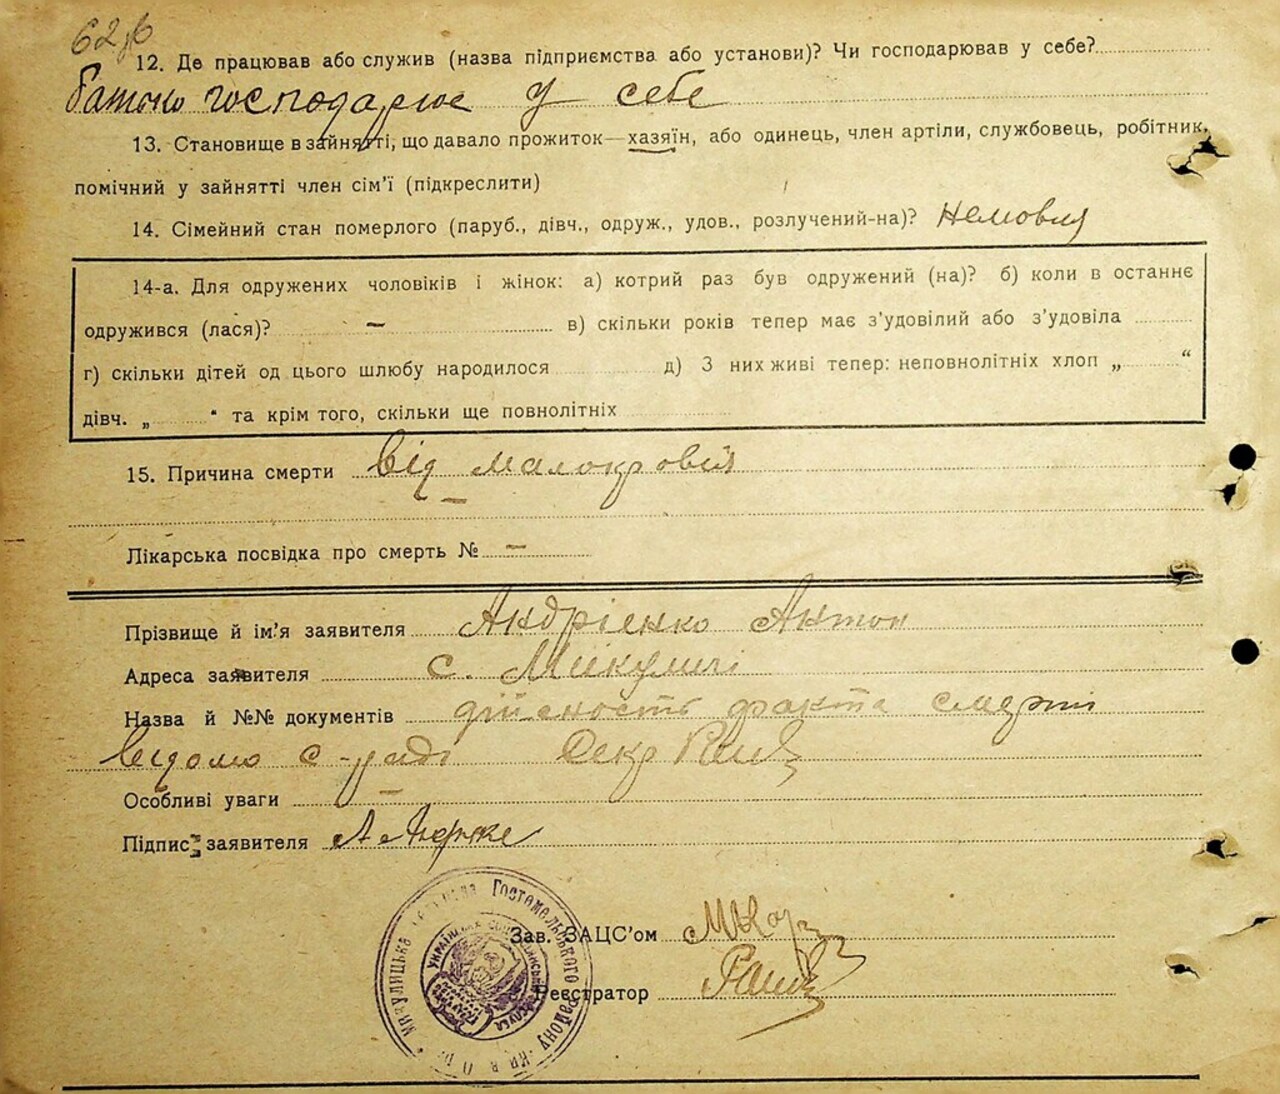 12. Де працював або служив (назва підприємства або установи)? Чи господарював у себе?
батько господарює у себе
13. Становище в зайнятті, що давало прожиток—хазяїн, або одинець, член артілі, службовець, робітник,
помічний у зайнятті член сім'ї (підкреслити)
14. Сімейний стан померлого (паруб., дівч., одруж., удов., розлучений-на)? Немовля
14-а. Для одружених чоловіків і жінок: а) котрий раз був одружений (на)? б) коли в останнє
одружився (лася)? – в) скільки років тепер має з'удовілий або з'удовіла
г) скільки дітей од цього шлюбу народилося д) З них живі тепер: неповнолітніх хлоп „ “
дівч. „ “ та крім того, скільки ще повнолітніх
15. Причина смерти Від малокровія
–
Лікарська посвідка про смерть № –
Прізвище й ім'я заявителя Андрієнко Антон
Адреса заявителя с. Микуличі
Назва й №№ документів дійсность факта смерти
Відомо с-раді Секр
Особливі уваги –
Підпис заявителя
Зав. ЗАЦС'ом
Реєстратор
Микулицька Гостомельського району